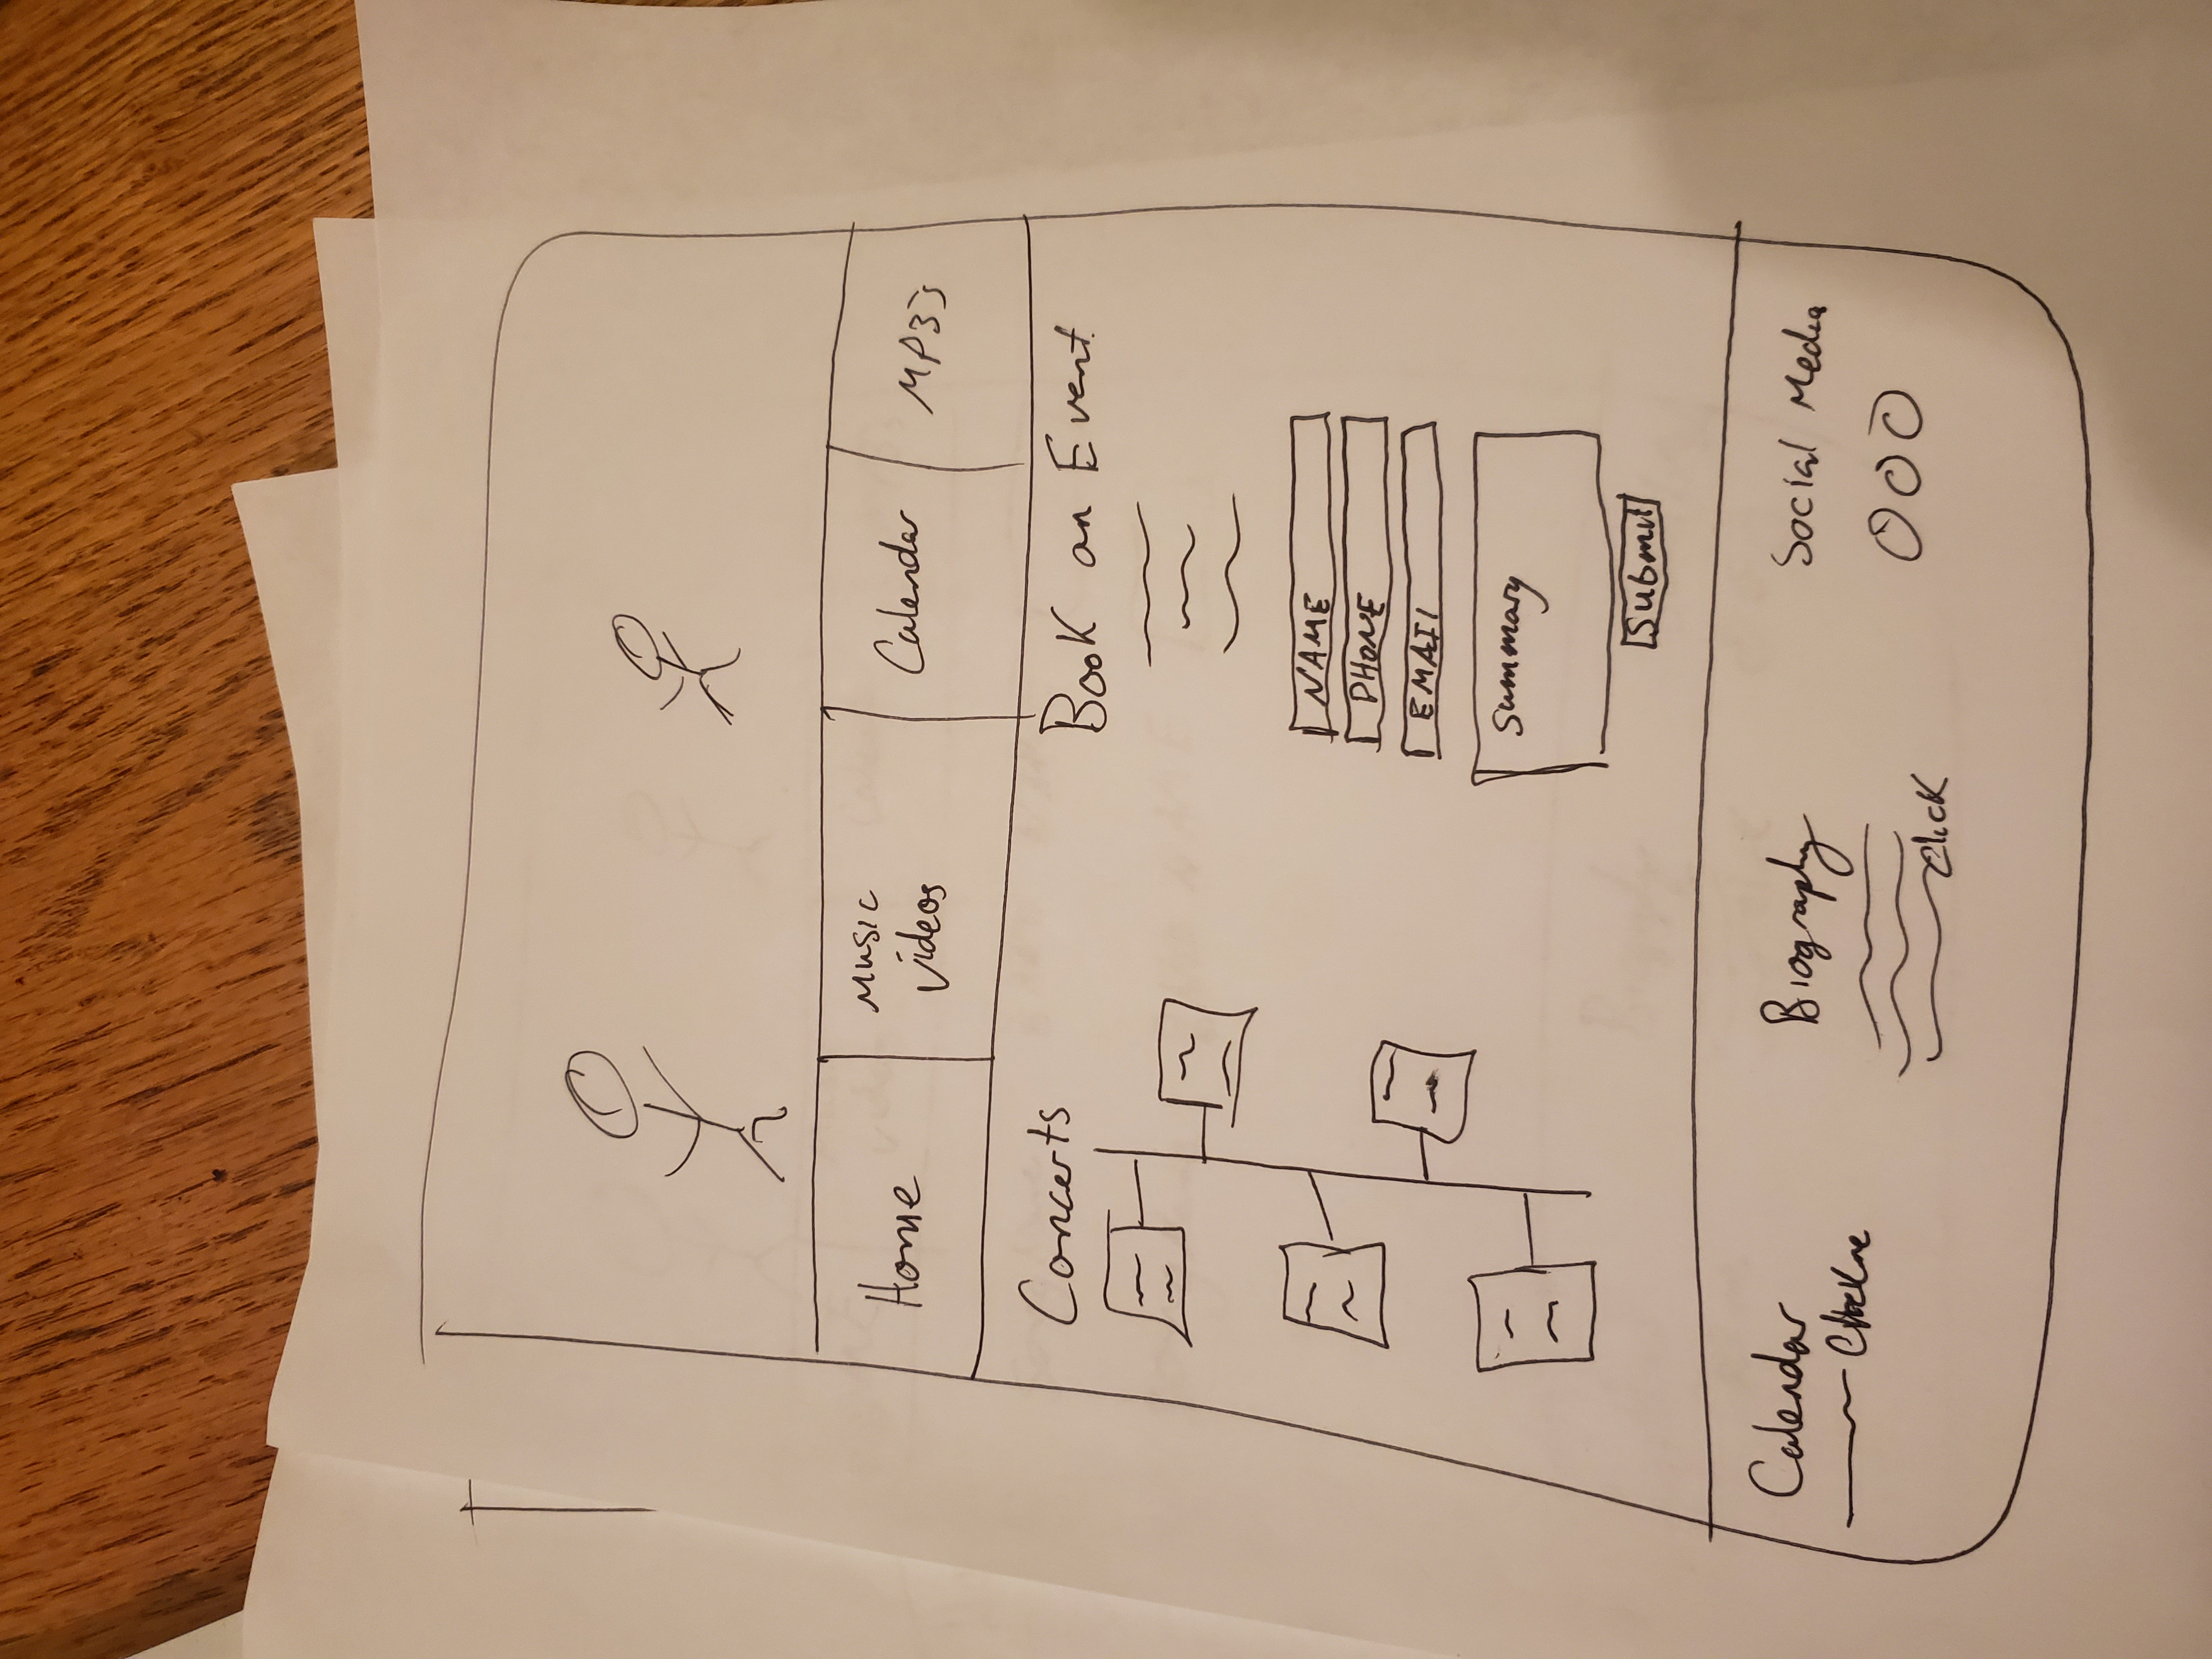 Home
Music
Videos
Calendar
MP3's
Concerts
Book an Event
NAME
PHONE
EMAIL
Summary
Submit
Calendar
Biography
Click
Social Media